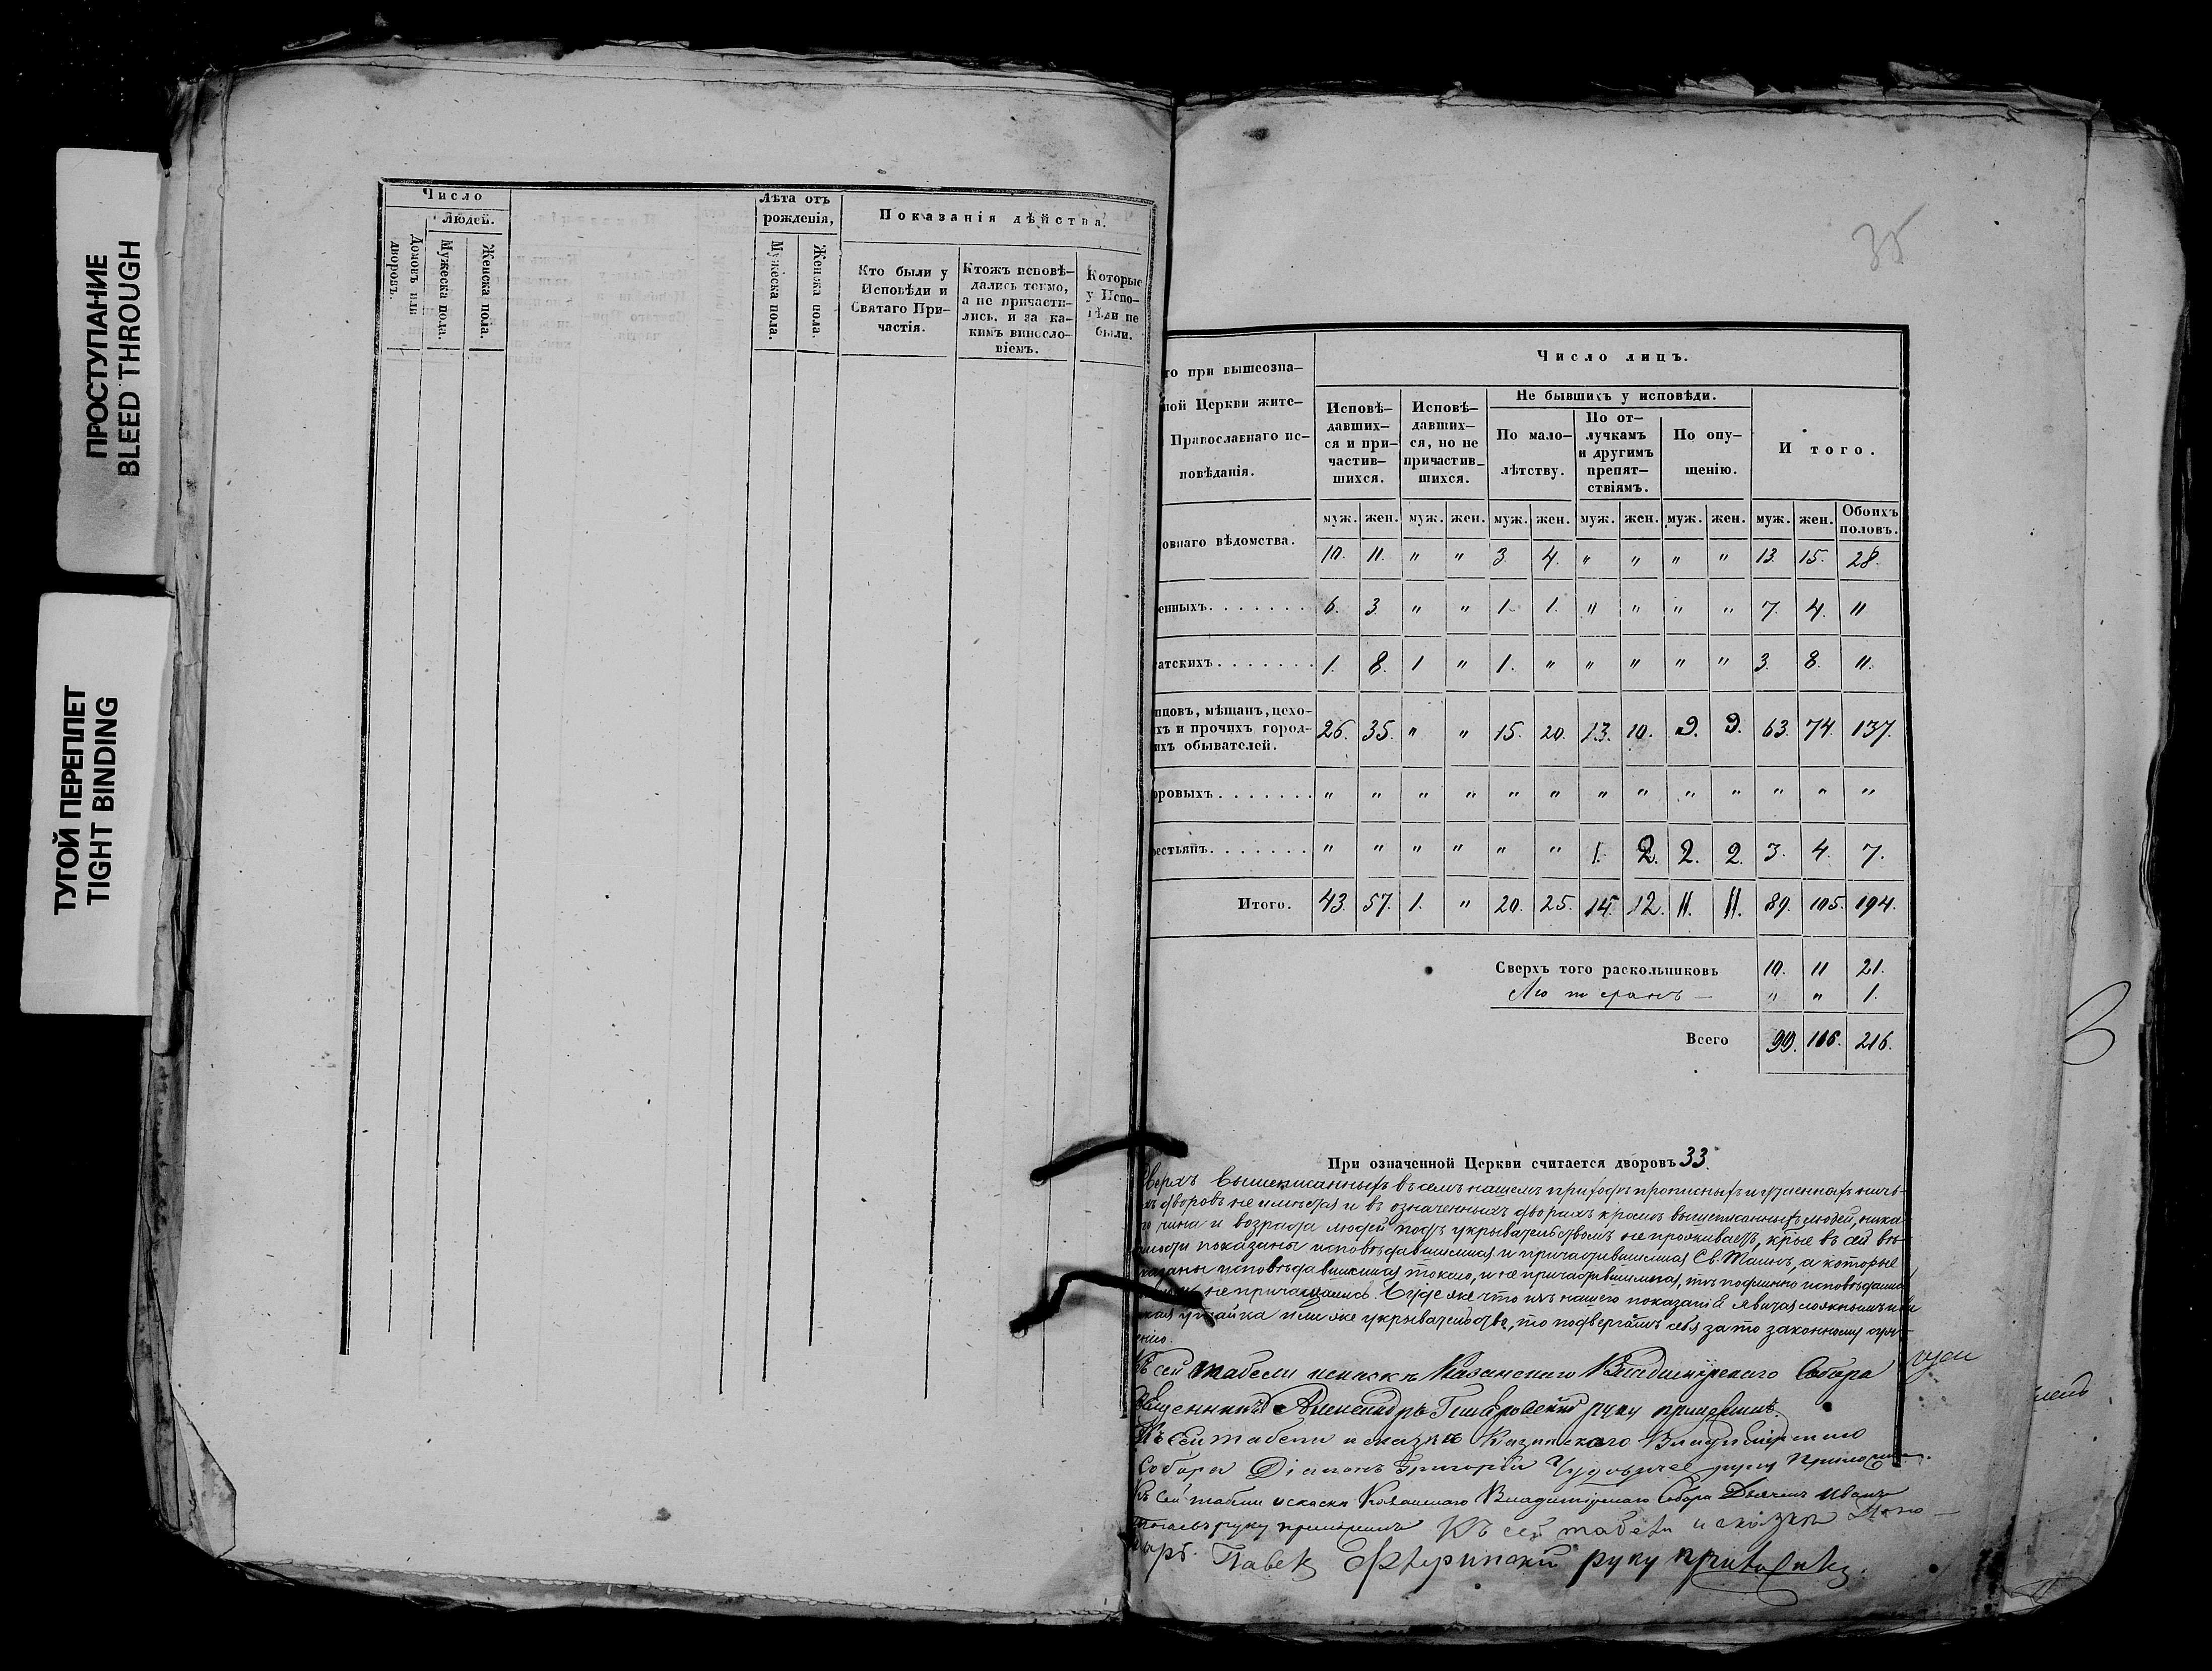 ПРОСТУПАНИЕ
BLEED THROUGH
ТУГОЙ ПЕРЕПЛЕТ
TIGHT BINDING
Число
Людей.
Домовъ или дворовъ.
Мужеска пола.
Женска пола.
Лѣта отъ рожденія,
Мужеска пола.
Женска пола.
Показанія дѣйства.
Кто были у
Исповѣди и
Святаго При-
частія.
Ктожъ исповѣ-
дались токмо,
а не причасти-
лись, и за ка-
кимъ винесло-
віемъ.
Которые
у Испо-
вѣди не
были.
35
то при вышеозна-
ной Церкви жите-
Православнаго ис-
повѣданія.
Число лицъ.
Исповѣ-
давших-
ся и при-
частив-
шихся.
Исповѣ-
давших-
ся, но не
причастив-
шихся.
Не бывшихъ у исповѣди.
По мало-
лѣтству.
По от-
лучкамъ
и другимъ
препят-
ствіямъ.
По опу-
щенію.
И того.
муж. жен. муж. жен. муж. жен. муж. жен. муж. жен. муж. жен. Обоихъ половъ.
овнаго вѣдомства. 10. 11. " " 3. 4. " " " " 13. 15. 28.
енныхъ. 6. 3. " " 1. 1. " " " " 7. 4. 11
атскихъ. 1. 8. 1 " 1. " " " " " 3. 8. 11.
пцовъ, мѣщанъ, цехо-
хъ и прочихъ город-
ихъ обывателей. 26. 35. " " 15. 20. 13. 10. 9. 9. 63. 74. 137.
оровыхъ. " " " " " " " " " " " " "
естьянъ. " " " " " " 1. 2. 2. 2. 3. 4. 7.
Итого. 43. 57. 1. " 20. 25. 14. 12. 11. 11. 89. 105. 194.
Сверхъ того раскольниковъ 10. 11 21.
Лютеранъ — " " 1.
Всего 99. 116. 216.
При означенной Церкви считается дворовъ 33.
вышеписанныхъ въ семъ нашемъ приходѣ прописныхъ и
дворовъ не имѣется и въ означенныхъ дворахъ кромѣ вышеписанныхъ людей, ника
чина и возраста людей подъ укрывательствомъ не проживаетъ, в сей вѣ-
показаны исповѣдавшимися и причастившимися Св. Таинъ, а которые
исповѣдавшимися токмо, и не причастившимися, тѣ подлинно исповѣдались
не причащались. Буде же что изъ нашего показанія явится ложнымъ
утайка или же укрывательство, то подвергаемъ себя за то законному
нію.
сей табели и сказкѣ Казанскаго Владимірскаго Собора
Священникъ Александръ руку приложилъ.
Къ сей табели и сказкѣ Казанскаго Владимірскаго
Собора Діаконъ Григорій руку приложилъ.
Къ сей табели и сказкѣ Казанскаго Владимірскаго Собора Дьячекъ Иванъ
руку приложилъ Къ сей табели и сказкѣ Поно-
марь Павелъ руку приложилъ.